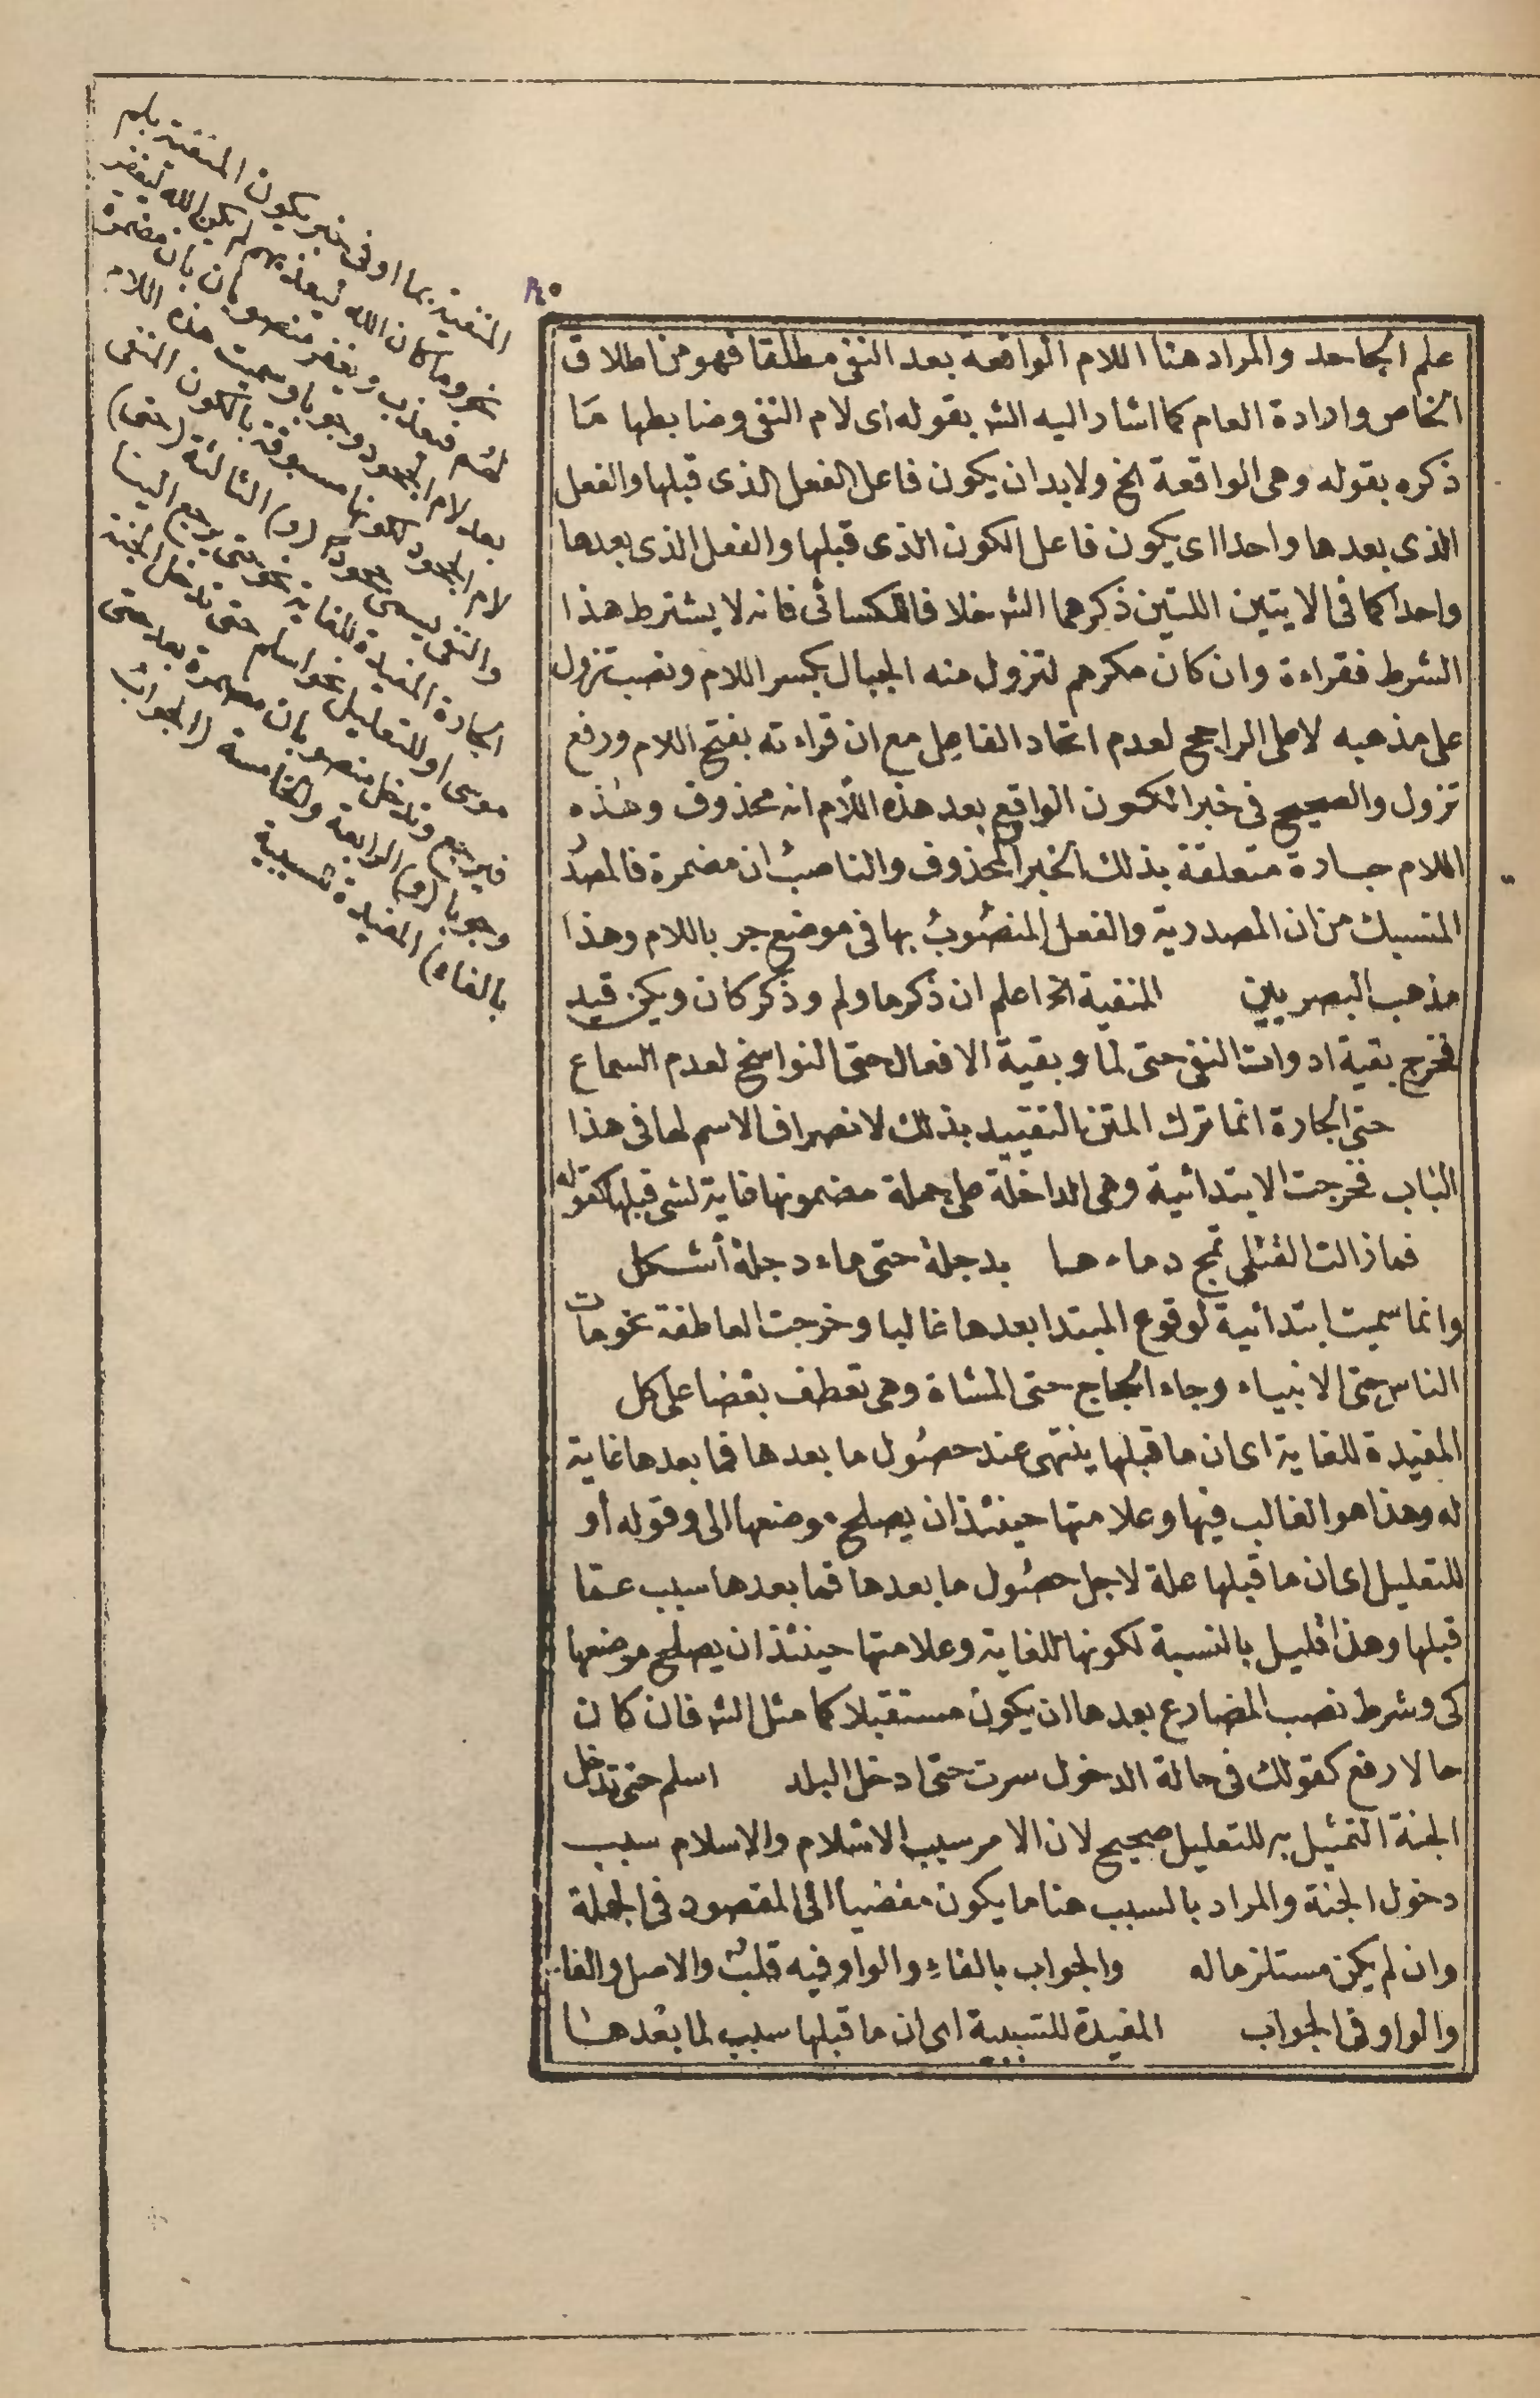 علم الجاحد والمراد هنا اللام الواقعة بعد النفى مطلقا فهو من اطلاق
الخاص وارادة العام كما اشار اليه الشه بقوله اى لام النفى وضابطها مَا
ذكره بقوله وهى الواقعة الخ ولا بد ان يكون فاعل الفعل الذى قبلها والفعل
الذى بعدها واحدا اى يكون فاعل الكون الذى قبلها والفعل الذى بعدها
واحدا كما فى الايتين اللتين ذكرهما الشه خلا فا للكسائى فانه لا يشترط هذا
الشرط فقراءة وان كان مكرهم لتزول منه الجبال بكسر اللام ونصب تزول
على مذهبه لا على الراجح لعدم اتحاد الفاعل مع ان قراءته بفتح اللام ورفع
تزول والصحيح فى خبر الكون الواقع بعد هذه اللام انه محذوف وهذه
اللام جارة متعلقة بذلك الخبر المحذوف والناصبُ ان مضمرة فالمصدُ
المنسبك من ان المصدرية والفعل المنصُوبُ بها فى موضع جر باللام وهذا
مذهب البصريين المنفية الخ اعلم ان ذكر ما ولم وذكر كان ويكن قيد
فخرج بقية ادوات النفى حتى لما وبقية الافعال حتى النواسخ لعدم السماع
حتى الجارة انما ترك المتن التقييد بذلك لانصراف الاسم لها فى هذا
الباب فخرجت الابتدائية وهى الداخلة على جملة مضمونها غاية لشى قبلها كقوله
فما زالت القتلى تمج دماءها بدجلة حتى ماء دجلة أشكل
وانما سميت ابتدائية لوقوع المبتدا بعدها غالبا وخرجت العاطفة نحو مات
الناس حتى الانبياء وجاء الحجاج حتى المشاة وهى تعطف بعضا على كل
المفيدة للغاية اى ان ما قبلها ينتهى عند حصُول ما بعدها فما بعدها غاية
له وهذا هو الغالب فيها وعلامتها حينئذ ان يصلح موضعها الى وقوله أو
للتعليل اى ان ما قبلها علة لاجل حصُول ما بعدها فما بعدها سبب عما
قبلها وهذا قليل بالنسبة لكونها للغاية وعلامتها حينئذ ان يصلح موضعها
كى وشرط نصب المضارع بعدها ان يكون مستقبلا كما مثل الشه فان كان
حالا رفع كقولك فى حالة الدخول سرت حتى ادخل البلد اسلم حتى تدخل
الجنة التمثيل به للتعليل صحيح لان الامر سبب الاسلام والاسلام سبب
دخول الجنة والمراد بالسبب هنا ما يكون مفضيا الى المقصود فى الجملة
وان لم يكن مستلزما له والجواب بالفاءِ والواو فيه قلبٌ والاصل والفا
والواو فى الجواب المفيدة للسببية اى ان ما قبلها سبب لما بعدها
المنفية بما او فى خبر يكون المنفية بلم
نحو وما كان الله ليعذبهم لم يكن الله ليغفر
لهم فيعذب ويغفر منصوبان بان مضمرة
بعد لام الجحود وجوبا وسميت هذه اللام
لام الجحود لكونها مسبوقة بالكون المنفى
والنفى يسمى جحودا (و) الثالثة (حتى)
الجارة المفيدة للغاية نحو حتى يرجع الينا
موسى او للتعليل نحو اسلم حتى تدخل الجنة
فيرجع وتدخل منصوبان بان مضمرة بعد حتى
وجوبا (و) الرابعة والخامسة (الجوابُ
بالفاء) المفيدة للسببية